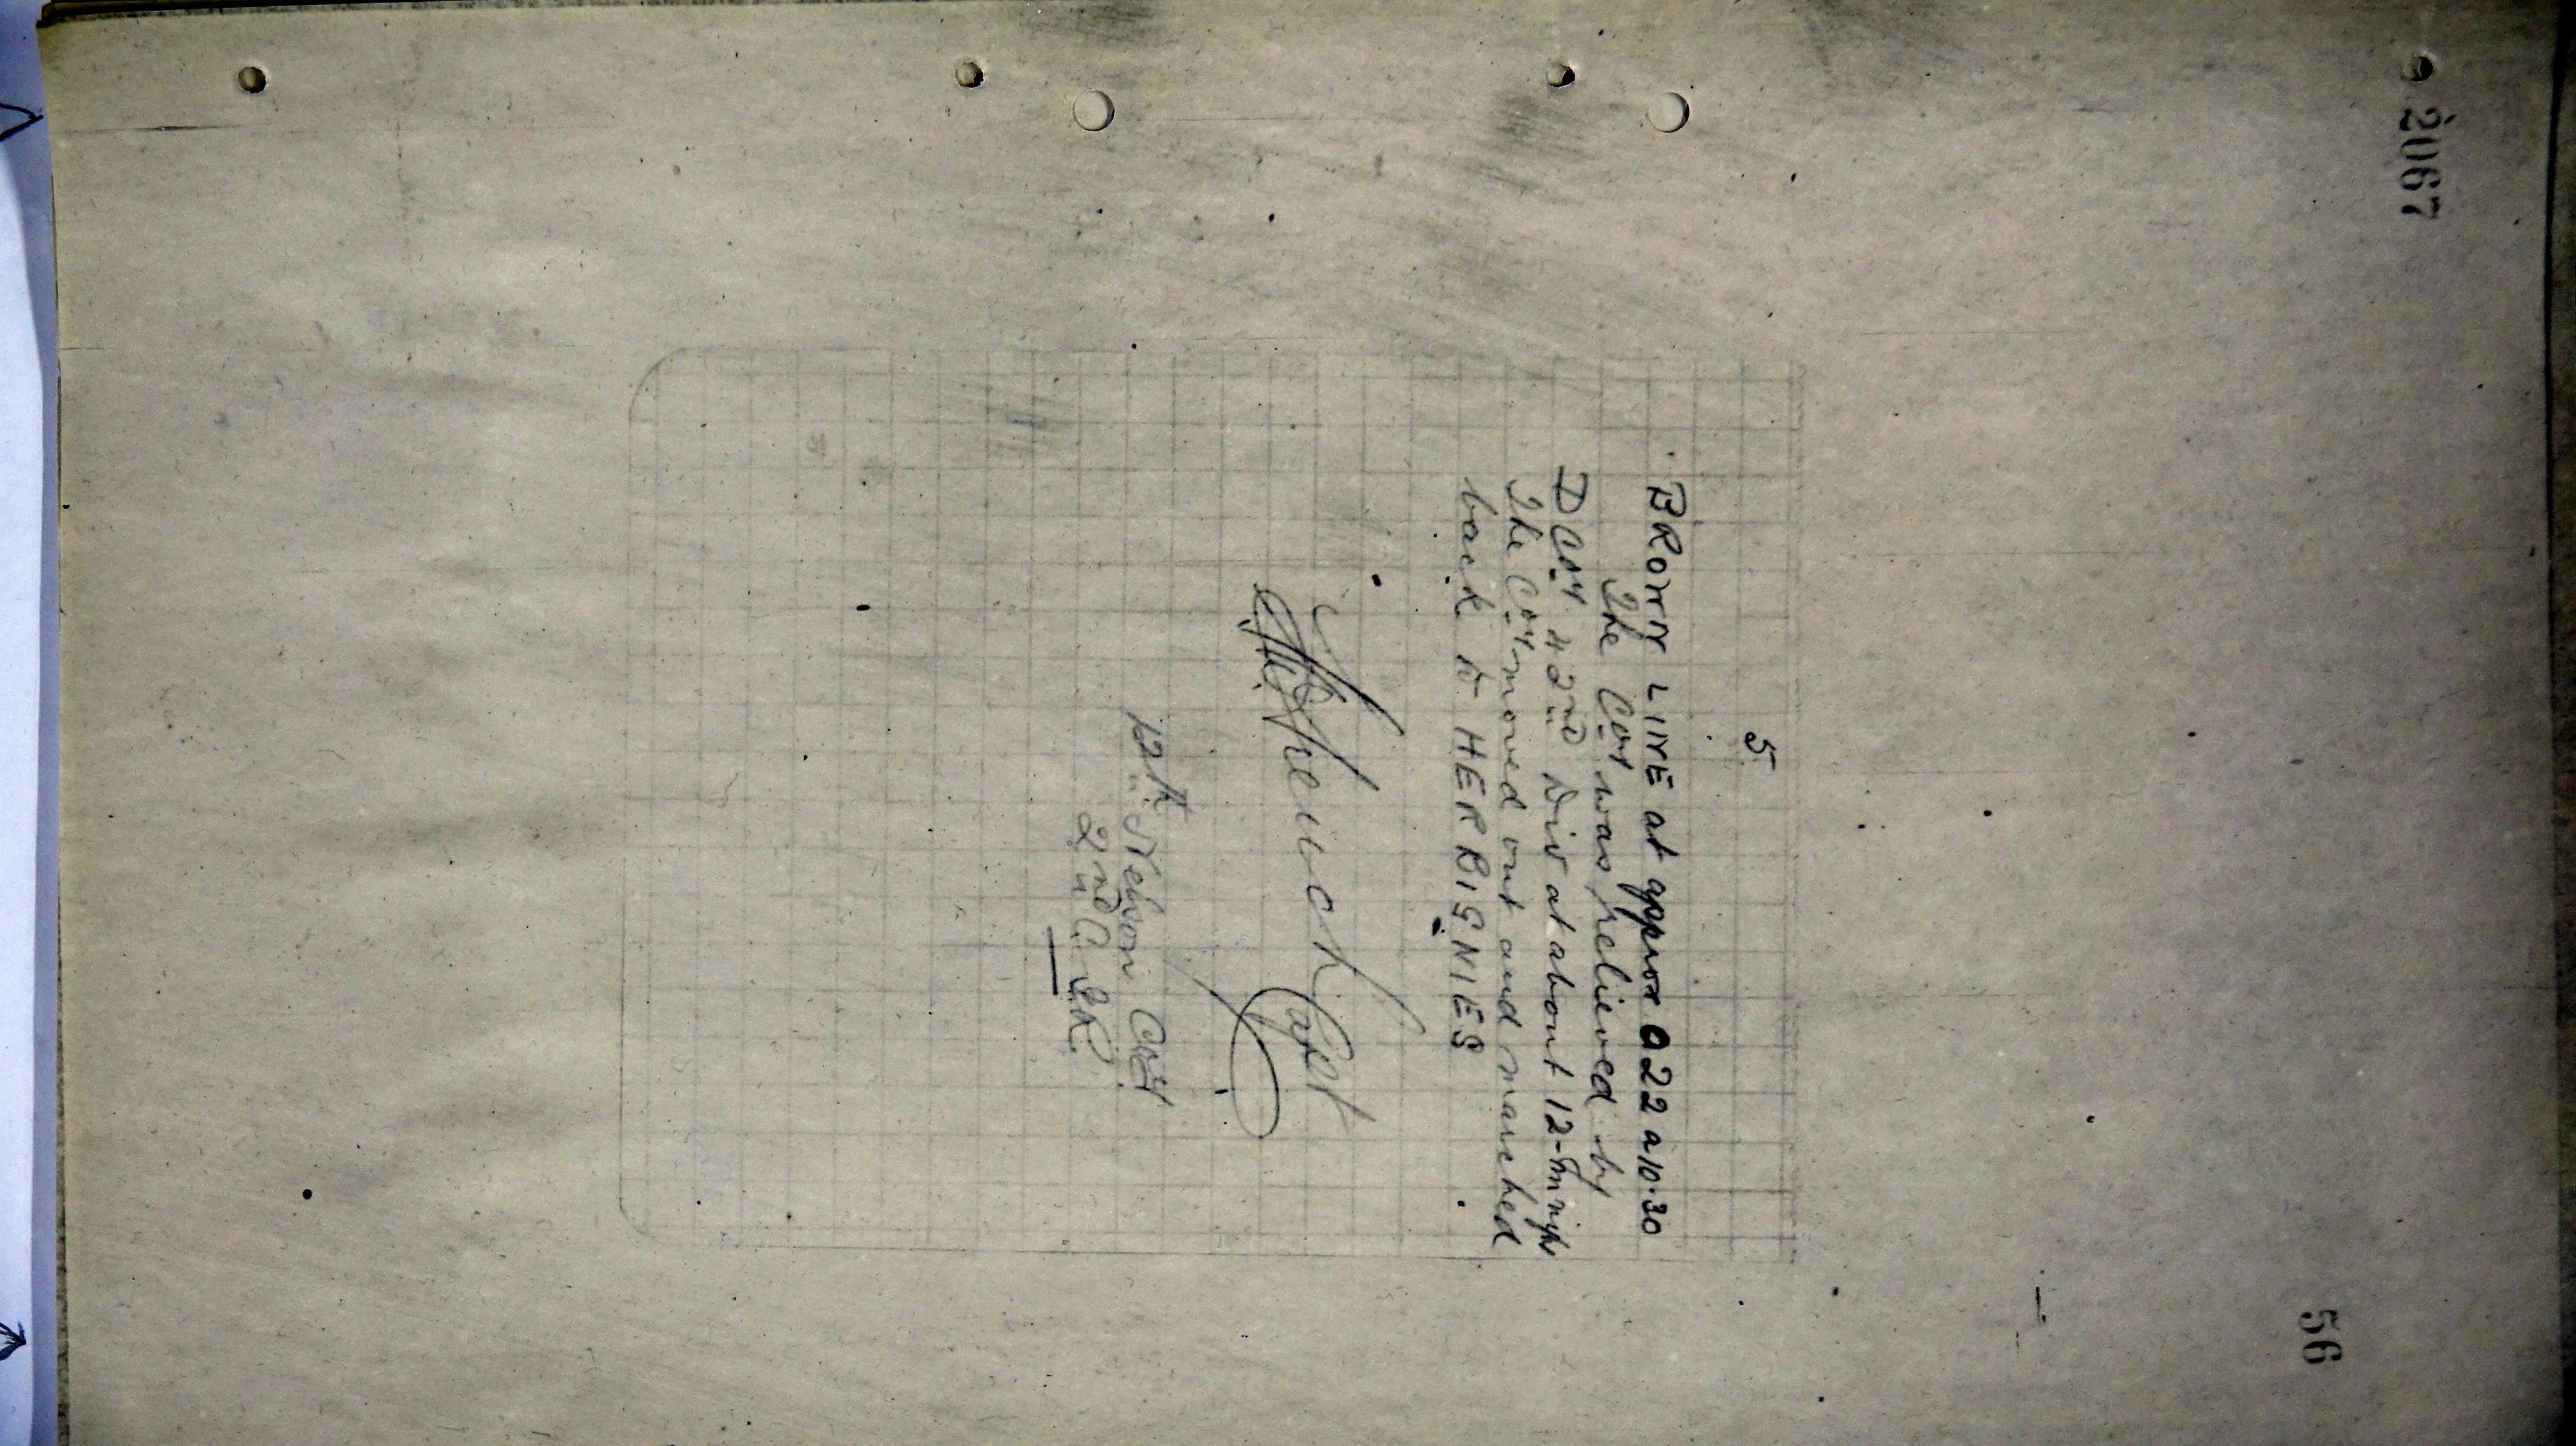 2067
56
5
BROWN LINE at approx O22 a10.30
The Coy was relieved by
D Coy 42nd Div at about 12-mnight
The Coy moved out and marched
back to HERBIGNIES
Capt
12th Nelson Coy
2nd